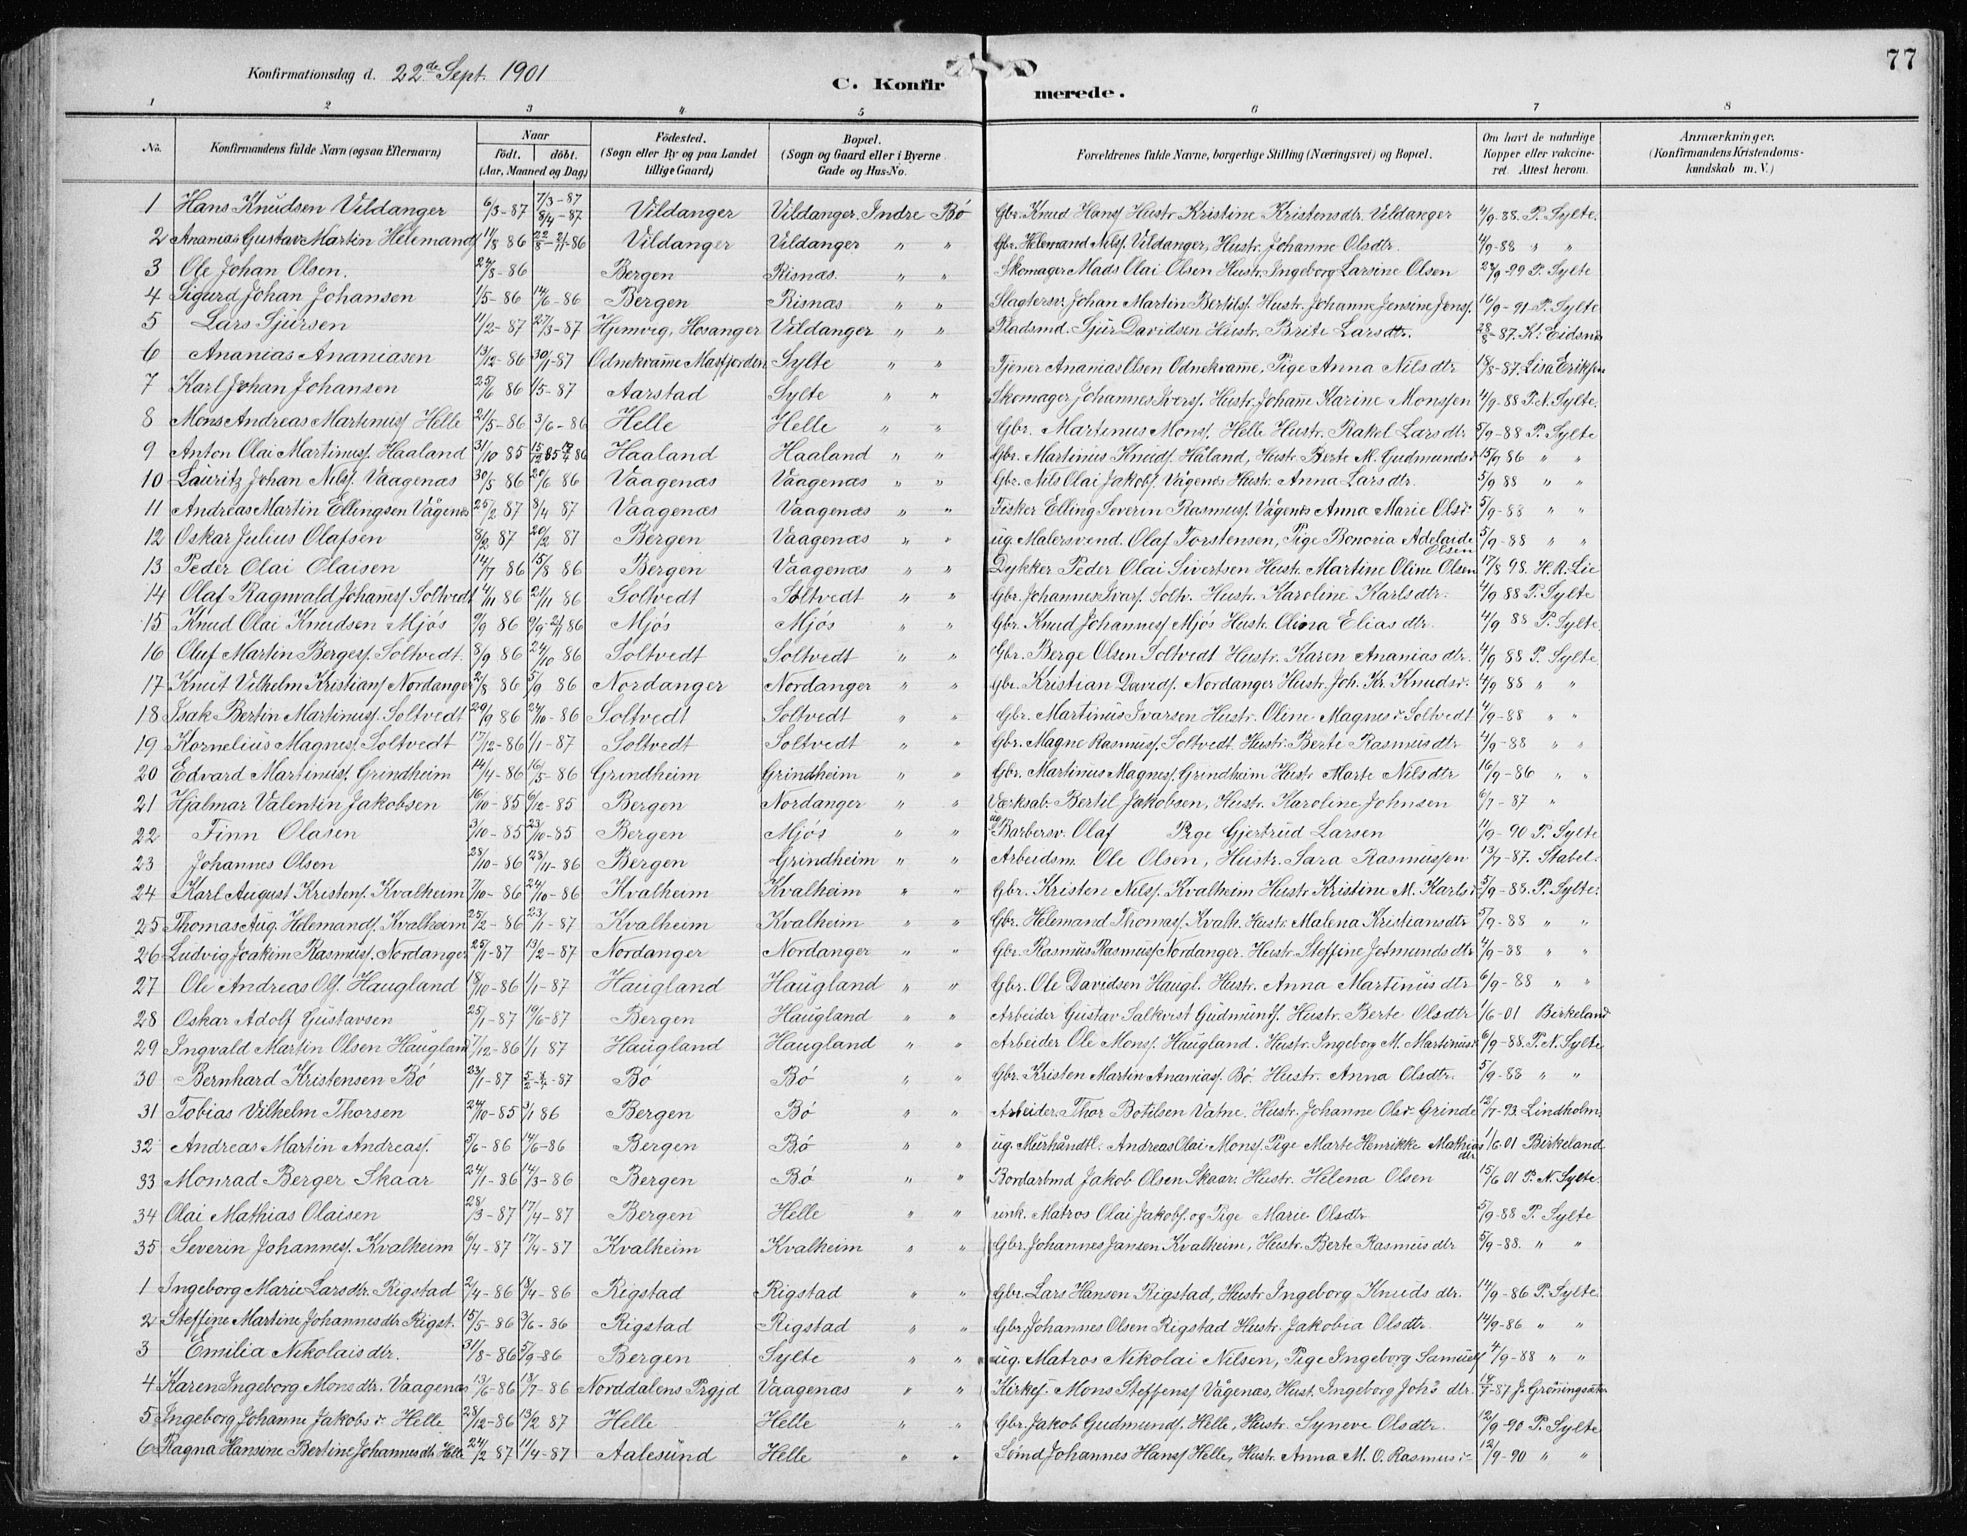 77
Konfirmationsdag d. 22de Sept. 1901 C. Konfirmerede.
1 2 3 4 5 6 7 8
No. Konfirmandens fulde Navn (ogsaa Efternavn) Naar født. døbt. (Aar, Maaned og Dag) Fødested. (Sogn eller By og paa Landet tillige Gaard) Bopæl. (Sogn og Gaard eller i Byerne Gade og Hus-No. Forældrenes fulde Navne, borgerlige Stilling (Næringsvei) og Bopæl. Om havt de naturlige Kopper eller vakcineret. Attest herom. Anmærkninger. (Konfirmandens Kristendomskundskab m. V.)
1 Hans Knudsen Vildanger 6/3-87 7/3-87 8/4-87 Vildanger Vildanger Indre Bø Gbr. Knud Hans. Hustr. Kristine Kristensdtr. Vildanger 4/9-88. P. Sylte.
2 Ananias Gustav Martin Helemands. 11/8 86 22/8-21/11-86 Vildanger Vildanger " " Gbr. Helemand Nils. Vildanger, Hustr. Johanne Olsdtr. 4/9-88 " "
3 Ole Johan Olsen. 24/8-86 Bergen Risnæs. " " Skomager Mads Olai Olsen Hustr. Ingeborg Larsine Olsen 22/9-99 P. Sylte
4 Sigurd Johan Johansen 1/5-86 14/6-86 Bergen Risnæs " " Slagtersv. Johan Martin Bertils. Hustr. Johanne Jensine Jens. 16/9-91 P. Sylte
5 Lars Sjursen 11/2-87 27/3-87 Hjemvig, Hosanger Vildanger " " Pladsmd. Sjur Davidsen Hustr. Brite Larsdtr. 28/8-87. K. Eidsnes
6 Ananias Ananiasen 13/12-86 30/1-87 Odnekvame Masfjorden Sylte " " Tjener Ananias Olsen Odnekvame, Pige Anna Nilsdtr 18/8-87. Lisa Eriksen
7 Karl Johan Johansen 25/6 86 1/5-87 Aarstad Sylte " " Skomager Johannes Ivers. Hustr. Johane Karine Monssen 4/9-88 P. N. Sylte.
8 Mons Andreas Martinus. Helle 21/5-86 3/6-86 Helle Helle " " Gbr. Martinus Mons. Helle Hustr. Rakel Larsdtr 5/9-88 P. Sylte
9 Anton Olai Martinus. Haaland 31/10 85 Haaland Haaland " " Gbr. Martinus Knuds. Håland, Hustr. Berte M. Gudmunds. 15/9 86 " "
10 Lauritz Johan Nils. Vaagenæs 30/5 86 20/6 86 Vaagenæs Vaagenæs " " Gbr. Nils Olai Jakobs. Vågenes Hustr. Anna Larsdtr. 5/9 88 " "
11 Andreas Martin Ellingsen Vågenes 25/2 87 8/4 87 Vaagenæs Vaagenæs " " Fisker Elling Severin Rasmus. Vågenes Anna Marie Olsd. 5/9-88 " "
12 Oskar Julius Olafsen 8/2 87 20/2 87 Bergen Vaagenæs " " ug. Malersvend. Olaf Torstensen, Pige Bonoria Adelaide Olsen 5/9-88 " "
13 Peder Olai Olaisen 14/7 86 15/8 86 Bergen Vaagenæs " " Dykker Peder Olai Sivertsen Hustr. Martine Oline Olsen 17/8 98. H. R. Lie
14 Olaf Ragnvald Johannes. Soltvedt 4/11 86 21/11 86 Soltvedt Soltvedt " " Gbr. Johannes Ivars. Soltv. Hustr. Karoline Karlsdtr. 4/9 88 P. Sylte
15 Knud Olai Knudsen Mjøs 9/9 86 Mjøs Mjøs " " Gbr. Knud Johannes. Mjøs Hustr. Olina Eliasdtr. 4/9 88 P. Sylte
16 Oluf Martin Berges. Soltvedt. 8/9 86 24/10 86 Soltvedt Soltvedt " " Gbr. Berge Olsen Soltvedt Hustr. Karen Ananiasdtr. 4/9 88 P. Sylte
17 Knut Vilhelm Kristians. Nordanger 2/8 86 5/9 86 Nordanger Nordanger " " Gbr. Kristian Davids. Nordanger Hustr. Joh. Kr. Knuds. 4/9 88 " "
18 Isak Bertin Martinus. Soltvedt 29/9 86 24/10-86 Soltvedt Soltvedt " " Gbr. Martinus Ivarsen Hustr. Oline Magnes. Soltvedt 4/9-88 " "
19 Kornelius Magnes. Soltvedt 17/12-86 1/1-87 Soltvedt Soltvedt " " Gbr. Magne Rasmus. Soltvedt. Hustr. Berte Rasmusdtr 4/9-88 " "
20 Edvard Martinus. Grindheim 14/4-86 16/5-86 Grindheim Grindheim " " Gbr. Martinus Magnes. Grindheim Hustr. Marte Nilsdtr 16/9-86 " "
21 Hjalmar Valentin Jakobsen 16/10-85 6/12-85 Bergen Nordanger " " Værksab. Bertil Jakobsen, Hustr. Karoline Johnsen 6/7-87 "
22 Finn Olasen 3/10-85 23/10-85 Bergen Mjøs " " ug Barbersv. Olaf Pige Gjertrud Larsen 11/9-90 P. Sylte
23 Johannes Olsen 28/10-86 28/11-86 Bergen Grindheim " " Arbeidsm. Ole Olsen, Hustr. Sara Rasmussen 13/7-87. Stabel.
24 Karl August Kristens. Kvalheim 7/10-86 24/10-86 Kvalheim Kvalheim " " Gbr. Kristen Nils. Kvalheim Hustr Kristine M. Karls. 5/9-88. P. Sylte.
25 Thomas Aug. Helemands. Kvalheim 25/12-86 23/1-87 Kvalheim Kvalheim " " Gbr. Helemand Thomas. Kvalh. Hustr. Malena Kristiansdtr 5/9-88 " "
26 Ludvig Joakim Rasmus. Nordanger 25/1-87 13/2-87 Nordanger Nordanger " " Gbr. Rasmus Rasmus. Nordanger. Hustr. Steffine Jetmundsdtr 4/9-88 " "
27 Ole Andreas Ols. Haugland 18/10-86 1/1-87 Haugland Haugland " " Gbr. Ole Davidsen Haugl. Hustr. Anna Martinusdtr 6/9-88 " "
28 Oskar Adolf Gustavsen 25/1-87 19/6-87 Bergen Haugland " " Arbeider Gustav Salkvist Gudmunds. Hustr. Berte Olsdtr 1/6-01 Birkeland
29 Ingvald Martin Olsen Haugland 7/12-86 1/1 87 Haugland Haugland " " Arbeider Ole Mons. Haugland. Hustr. Ingeborg M. Martinus. 6/9-88. P. N. Sylte
30 Bernhard Kristensen Bø 23/1-87 Bø Bø " " Gbr. Kristen Martin Ananias. Bø. Hustr. Anna Olsdtr. 5/9-88 " "
31 Tobias Vilhelm Thorsen 24/10-85 3/1 86 Bergen Bø " " Arbeider. Thor Botelsen Vatne. Hustr. Johanne Olsd. Grinde 12/7-93. Lindholm.
32 Andreas Martin Andreas. 5/6-86 14/6-86 Bergen Bø " " ug. Murhåndtl. Andreas Olai Mons. Pige Marte Henrikke Mathiasdtr 1/6.01 Birkeland
33 Monrad Berger Skaar 24/1-86 14/3-86 Bergen Bø " " Bordarbmd Jakob Olsen Skaar. Hustr. Helena Olsen 15/6 01 P. N. Sylte.
34 Olai Mathias Olaisen 28/3-87 17/4-87 Bergen Helle " " unk. Matros Olai Jakobs. og Pige Marie Olsdtr 5/9-88 P. Sylte
35 Severin Johannes. Kvalheim 6/4-87 17/4-87 Kvalheim Kvalheim " " Gbr. Johannes Jansen Kvalheim, Hustr. Berte Rasmusdtr 5/9-88. " "
1 Ingeborg Marie Larsdtr. Rigstad 2/4-86 18/4-86 Rigstad Rigstad " " Gbr. Lars Hansen Rigstad, Hustr Ingeborg Knudsdtr. 14/9-86 P. Sylte.
2 Steffine Martine Johannesdtr Rigst. 15/5-86 3/6-86 Rigstad Rigstad " " Gbr. Johannes Olsen Rigstad Hustr. Jakobia Olsdtr. 14/9-86 " "
3 Emilia Nikolaisdtr. 31/8-86 5/9-86 Bergen Sylte " " ug. Matros Nikolai Nilsen, Pige Ingeborg Samuels. 4/9-88 " "
4 Karen Ingeborg Monsdtr. Vaagenæs 13/6-86 18/7-86 Norddalens Prgjd Vaagenæs " " Kirkes. Mons Steffens. Vågenæs, Hust. Ingeborg Joh's dtr. 14/7-87 J. Grøningsæter
5 Ingeborg Johanne Jakobsd. Helle 28/12-86 13/2 87 Helle Helle " " Gbr. Jakob Gudmunds. Helle, Hustr. Syneve Olsdtr. 12/9-90 P. Sylte
6 Ragna Hansine Bertine Johannesdtr Helle 24/2 87 11/4-87 Aalesund Helle " " Sømd Johannes Hans. Helle, Hustr. Anna M. O. Rasmus. 12/9-90 " "